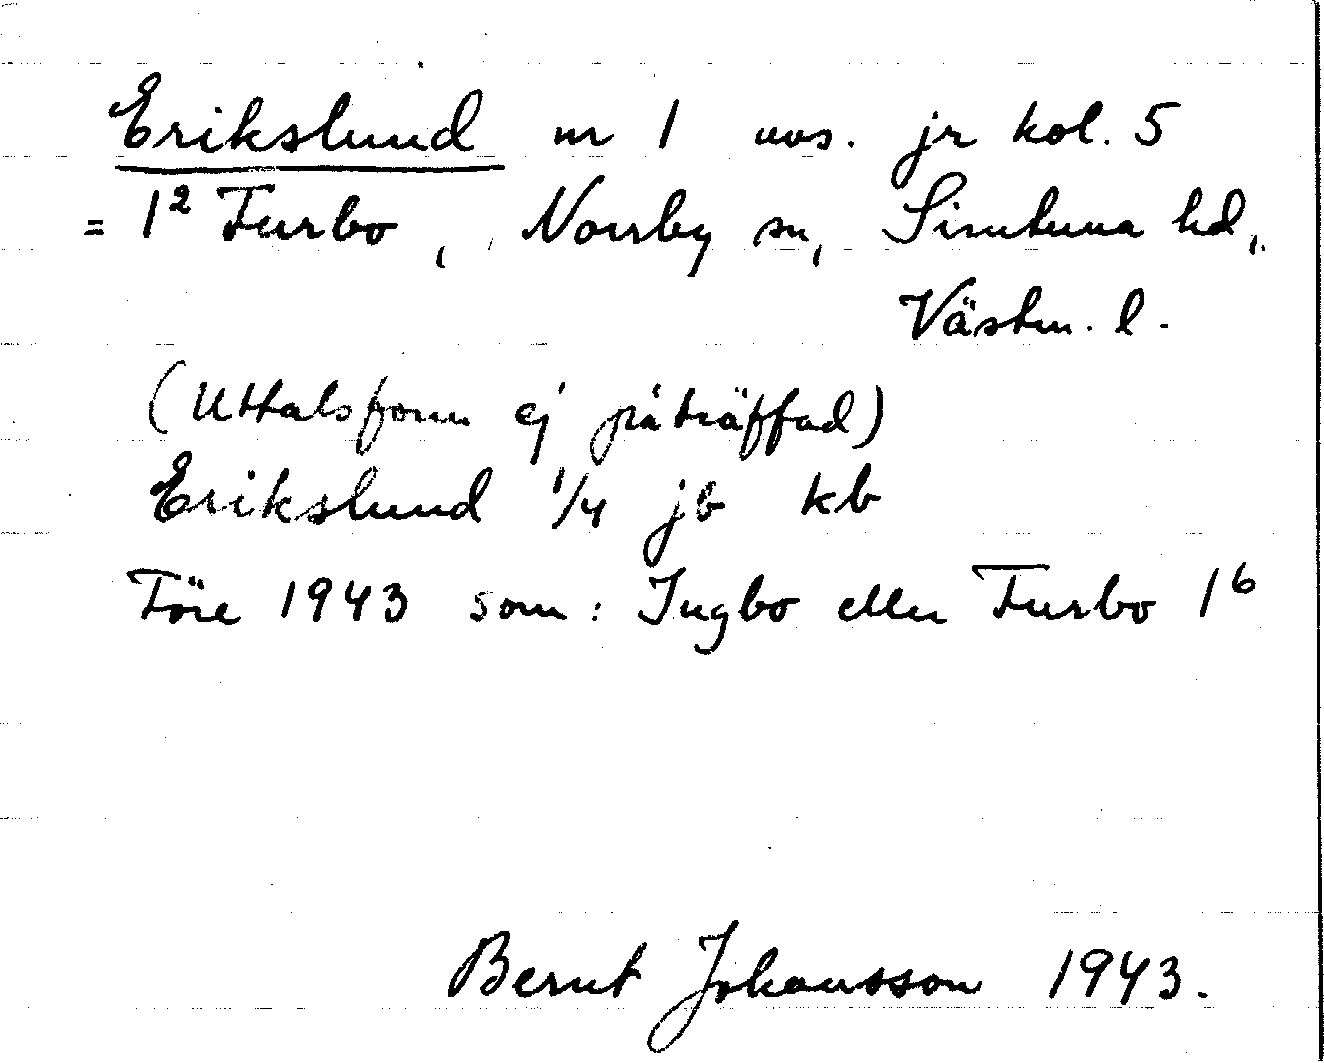 Erikslund nr 1 avs. jr kol. 5
= 1² Turbo, Norrby sn, Simtuna hd,
Västm. l.
(Uttalsform ej påträffad)
Erikslund 1/4 jb kb
Före 1943 som: Ingbo eller Turbo 1⁶
Bernt Johansson 1943.